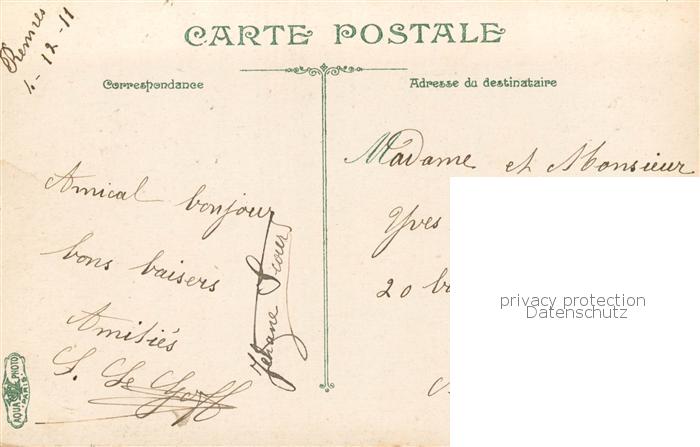 Rennes
1-12-11
CARTE POSTALE
Correspondance
Adresse du destinataire
Amical bonjour
bons baisers
Amitiés
S. Le Goff
Jehane
Madame et Monsieur
Yves
20
privacy protection
Datenschutz
AQUA PHOTO
PARIS